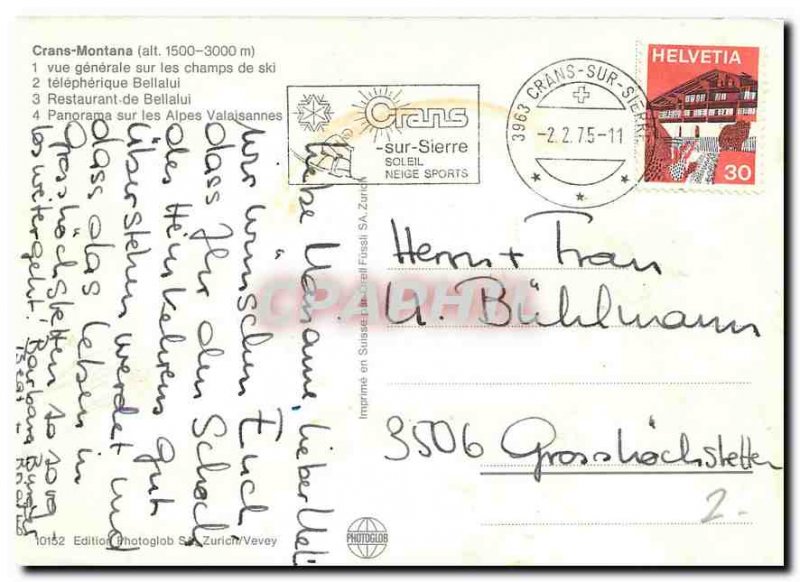 Crans-Montana (alt. 1500–3000 m)
1 vue générale sur les champs de ski
2 téléphérique Bellalui
3 Restaurant de Bellalui
4 Panorama sur les Alpes Valaisannes
Crans
-sur-Sierre
SOLEIL
NEIGE SPORTS
3963 CRANS-SUR-SIERRE
-2.2.75-11
HELVETIA
30
Liebe Marianne, lieber Ueli
wir wünschen Euch
dass Ihr den Schock
des Heimkehrens gut
überstehen werdet und
dass das Leben in
Grosshöchstetten so
weitergeht! Barbara
Beat
Herrn + Frau
U. Bühlmann
3506 Grosshöchstetten
2.-
CPAPHIL
Imprimé en Suisse Orell Füssli SA, Zurich
10152 Edition Photoglob SA, Zurich/Vevey
PHOTOGLOB